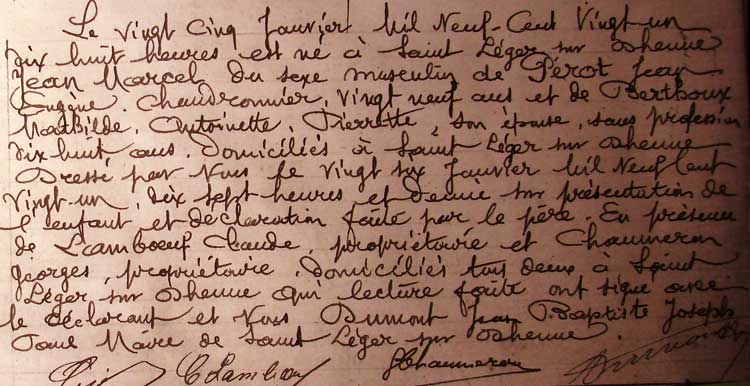 Le Vingt Cinq Janvier Mil Neuf-Cent Vingt un
dix huit heures est né à Saint Léger sur Dheune
Jean Marcel du sexe masculin de Pérot Jean
Eugène. Chaudronnier, Vingt neuf ans et de Berthoux
Mathilde, Antoinette, Pierrette, son épouse, sans profession
dix huit ans. Domiciliés à Saint Léger sur Dheune
Dressé par Nous le Vingt six Janvier Mil Neuf Cent
Vingt-un, dix sept heures et demie sur présentation de
l'enfant et déclaration faite par le père. En présence
de Lambœuf Claude, propriétaire et Chaumeron
Georges, propriétaire, domiciliés tous deux à Saint
Léger sur Dheune qui lecture faite ont signé avec
le déclarant et Nous Dumont Jean Baptiste Joseph
Paul Maire de Saint Léger sur Dheune.
C Lambœuf GChaumeron